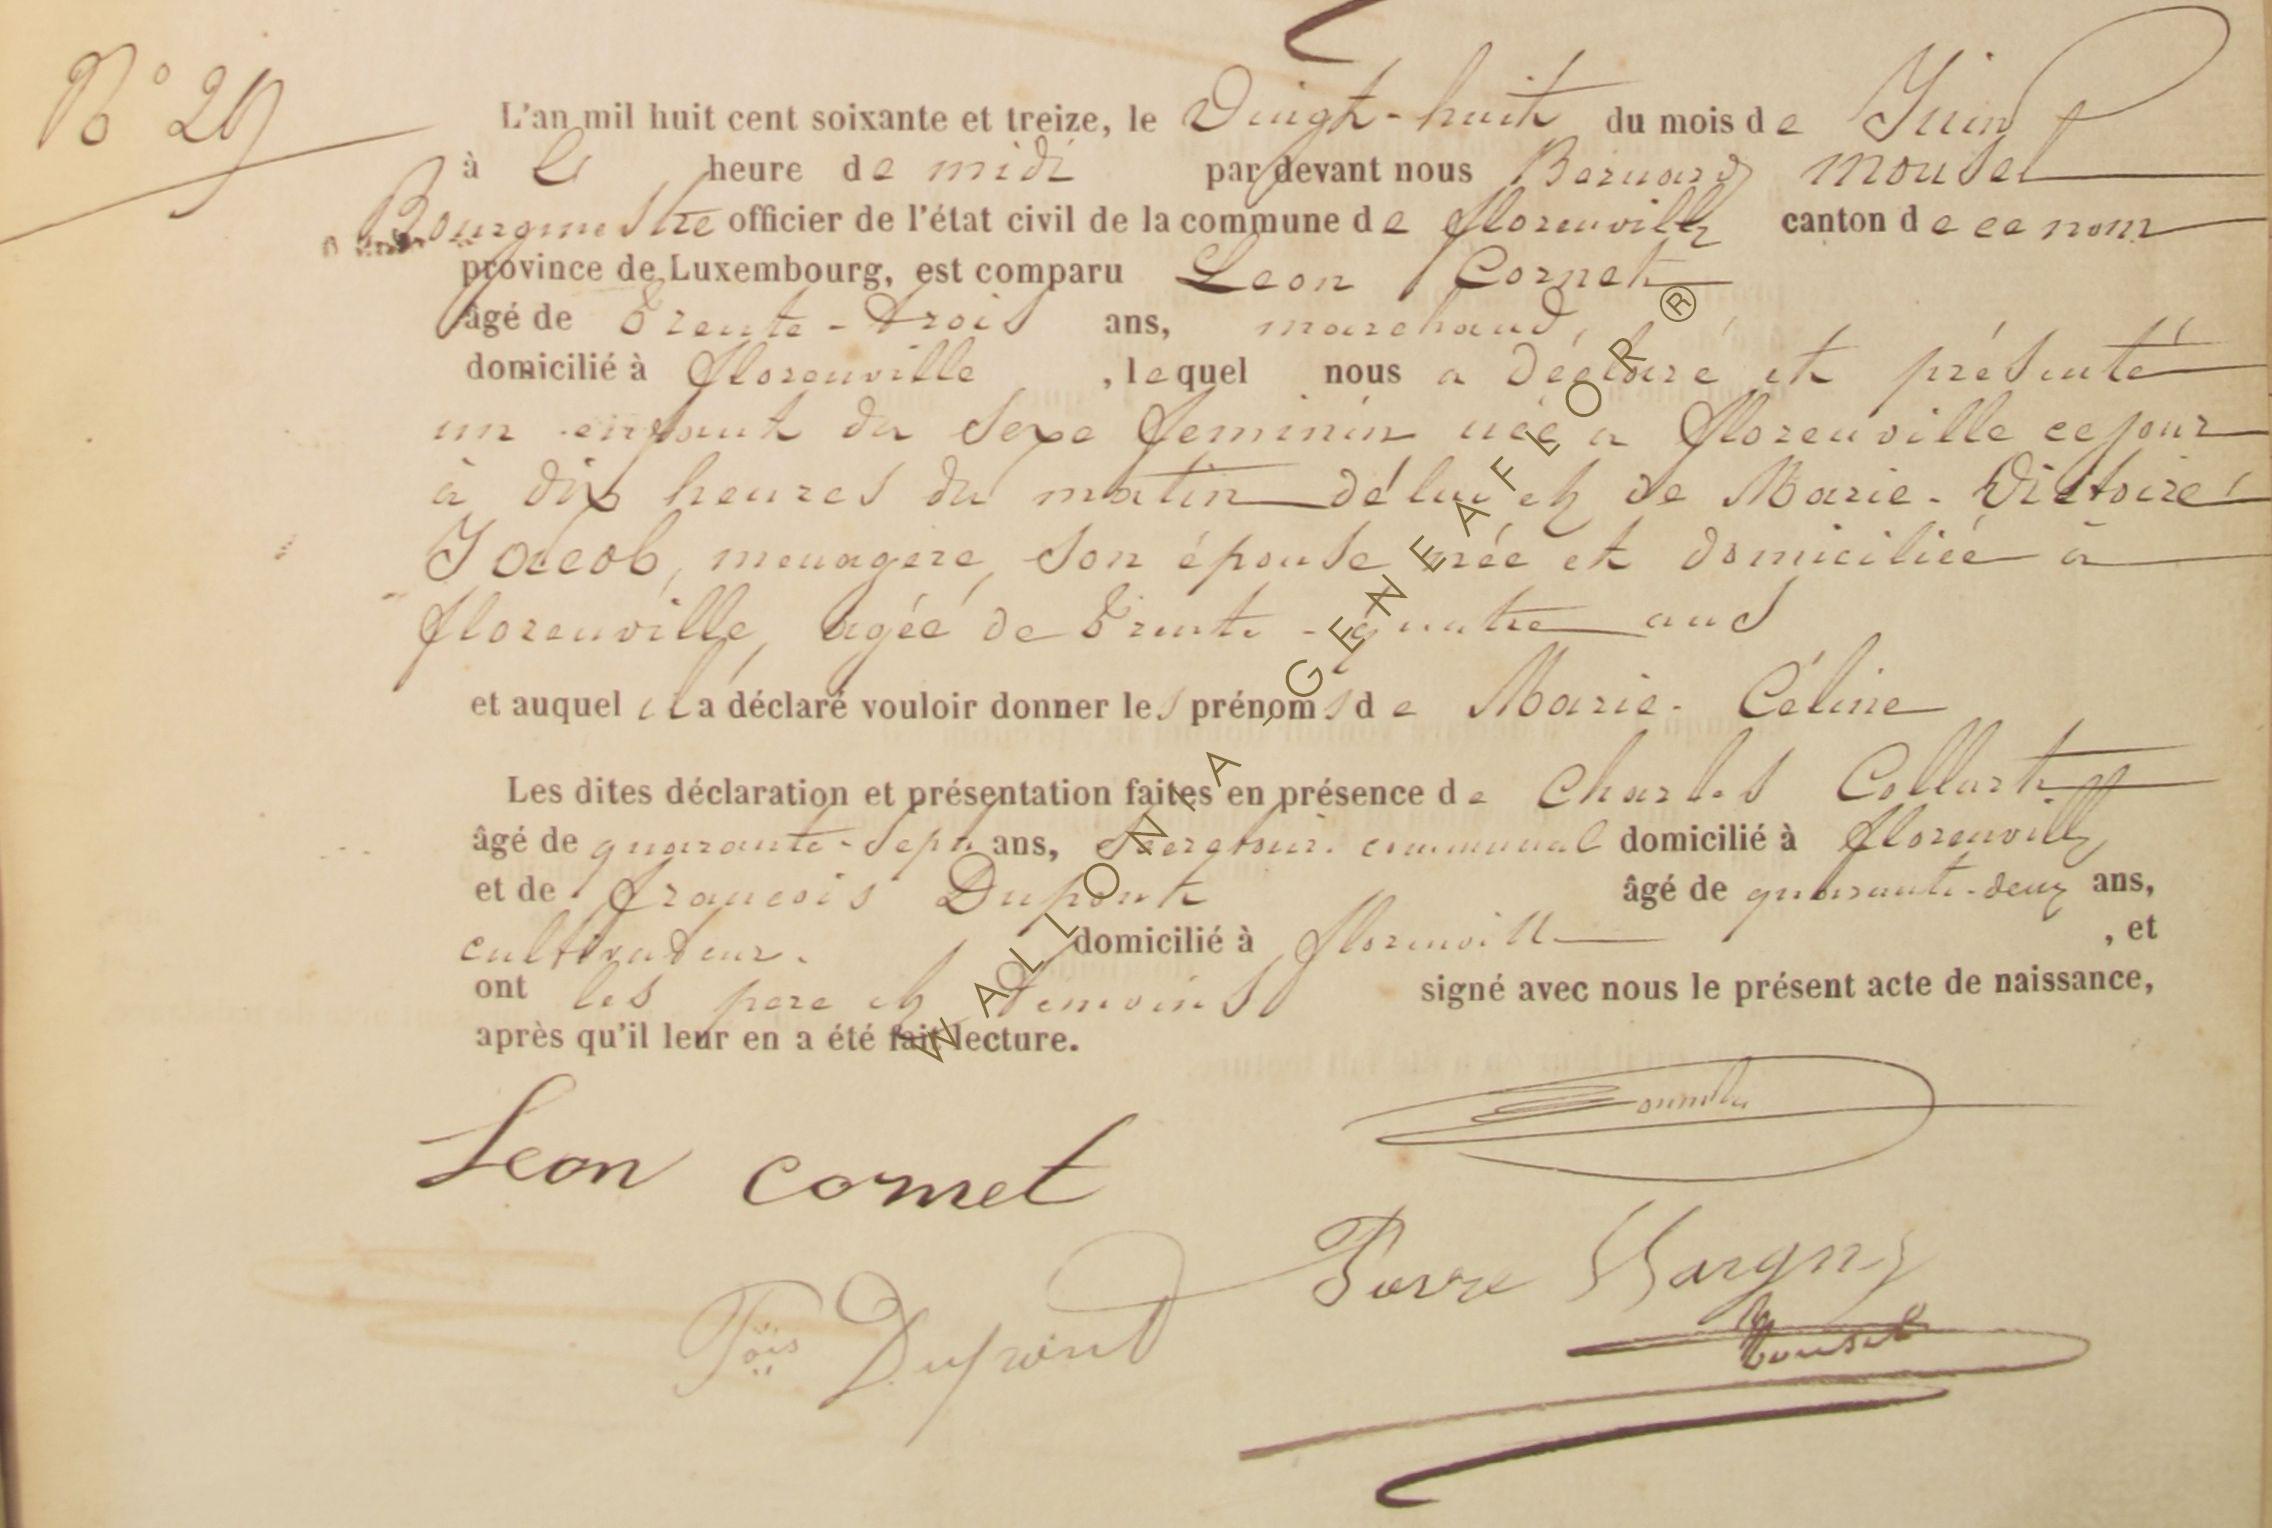 N° 29
L'an mil huit cent soixante et treize, le Vingt-huit du mois de Juin
à heure de midi par devant nous Bernard Mousel
Bourgmestre officier de l'état civil de la commune de florenville canton de ce nom
province de Luxembourg, est comparu Leon Cornet
âgé de Trente-trois ans, marchand,
domicilié à florenville, lequel nous a déclaré et présenté
un enfant du sexe feminin née a florenville ce jour
à dix heures du matin de lui et de Marie-Victoire
Jacob, menagere, son épouse née et domiciliée à
florenville, agée de Trente-quatre ans
et auquel il a déclaré vouloir donner les prénoms de Marie-Céline
Les dites déclaration et présentation faites en présence de Charles Collart
âgé de quarante-sept ans, Secretaire communal domicilié à florenville
et de francois Dupont âgé de quarante-deux ans,
cultivateur. domicilié à florenville, et
ont les pere et temoins signé avec nous le présent acte de naissance,
après qu'il leur en a été fait lecture.
Leon cornet
Pierre
Fois Dupont
Mousel
WALLONIA - GENEAFLOR ®